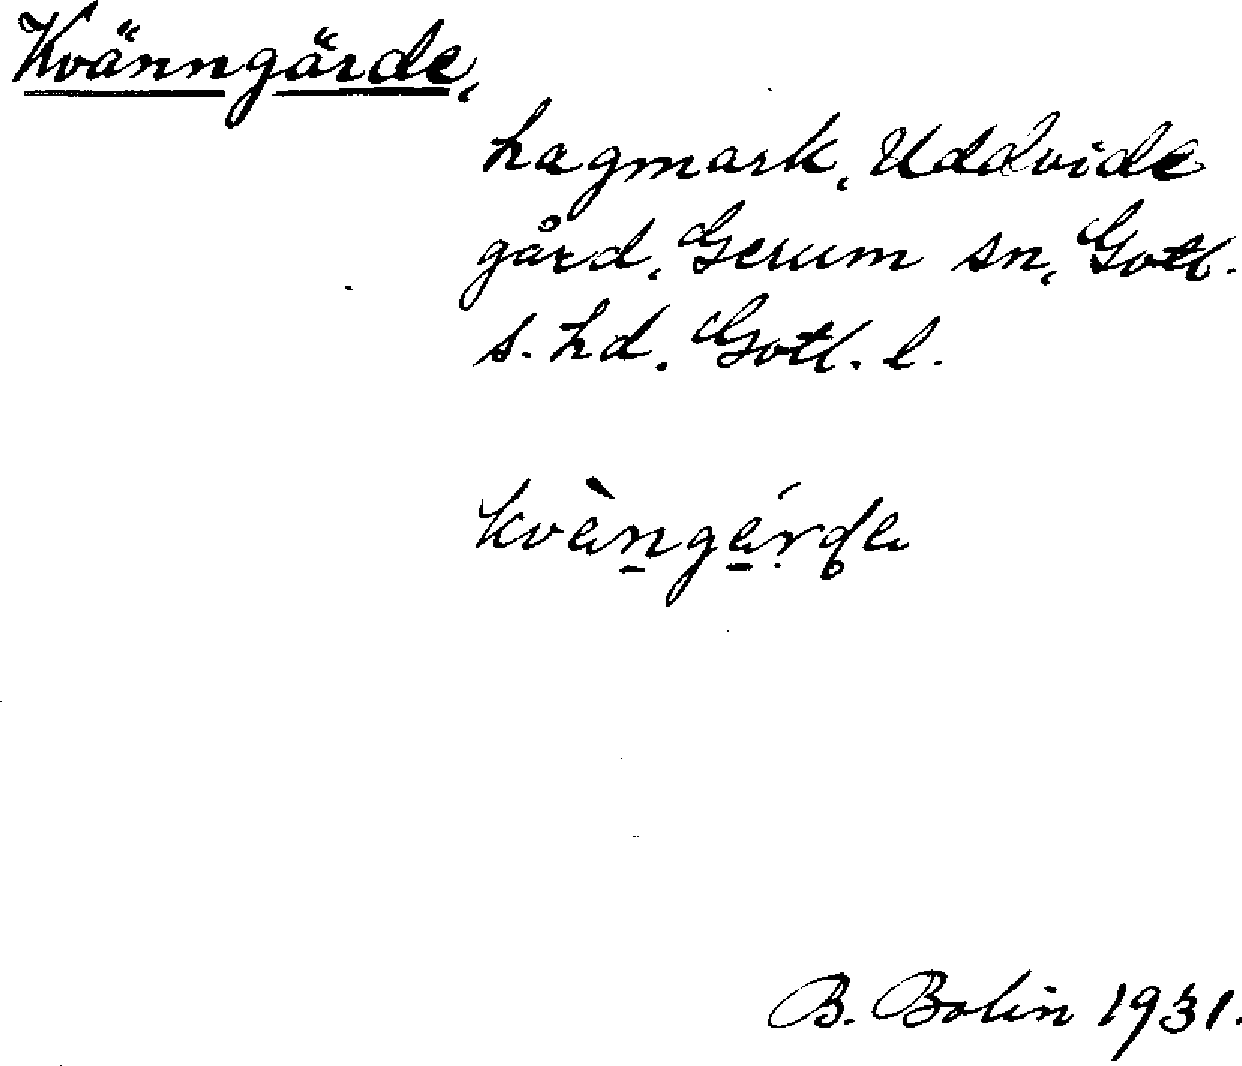 Kvänngärde,
hagmark, Uddvide
gård, Gerum sn, Gotl.
s. hd. Gotl. l.
kvèngérde
B. Bolin 1931.